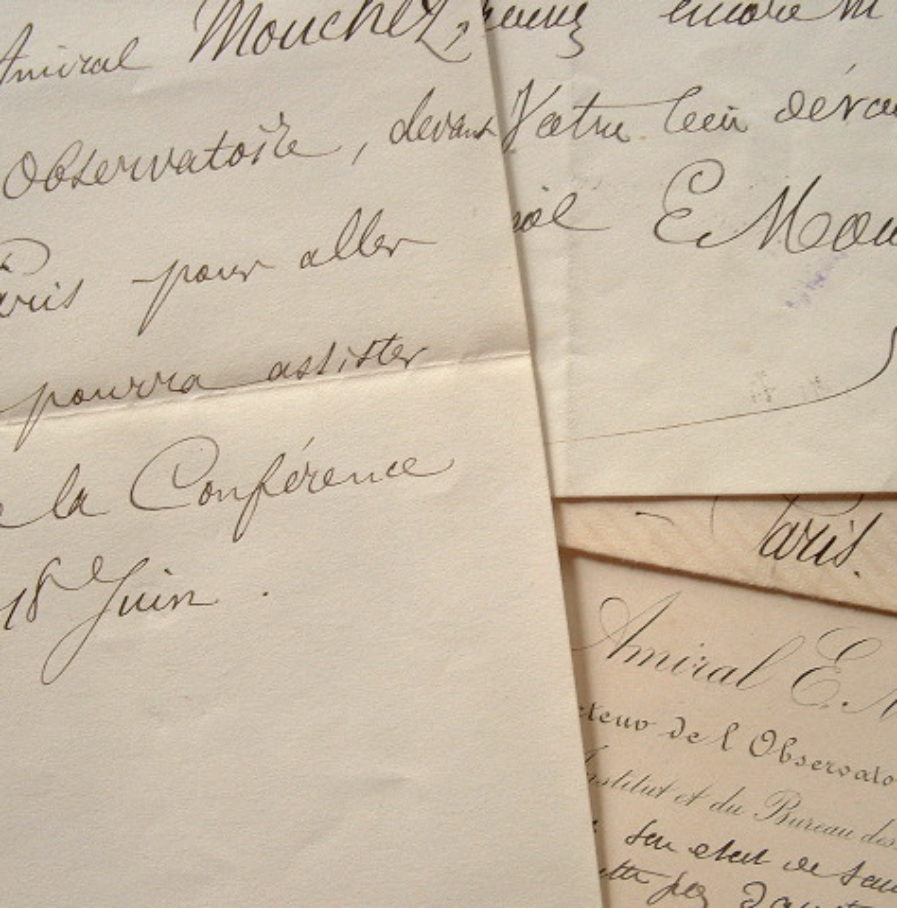 Amiral Mouchez,
Observatoire, devant
Paris pour aller
pourra assister
la Conférence
18 Juin.
encore
Votre bien dévoué
E. Mou
Paris.
Amiral E. M
cteur de l'Observato
Institut et du Bureau des
son etat de san